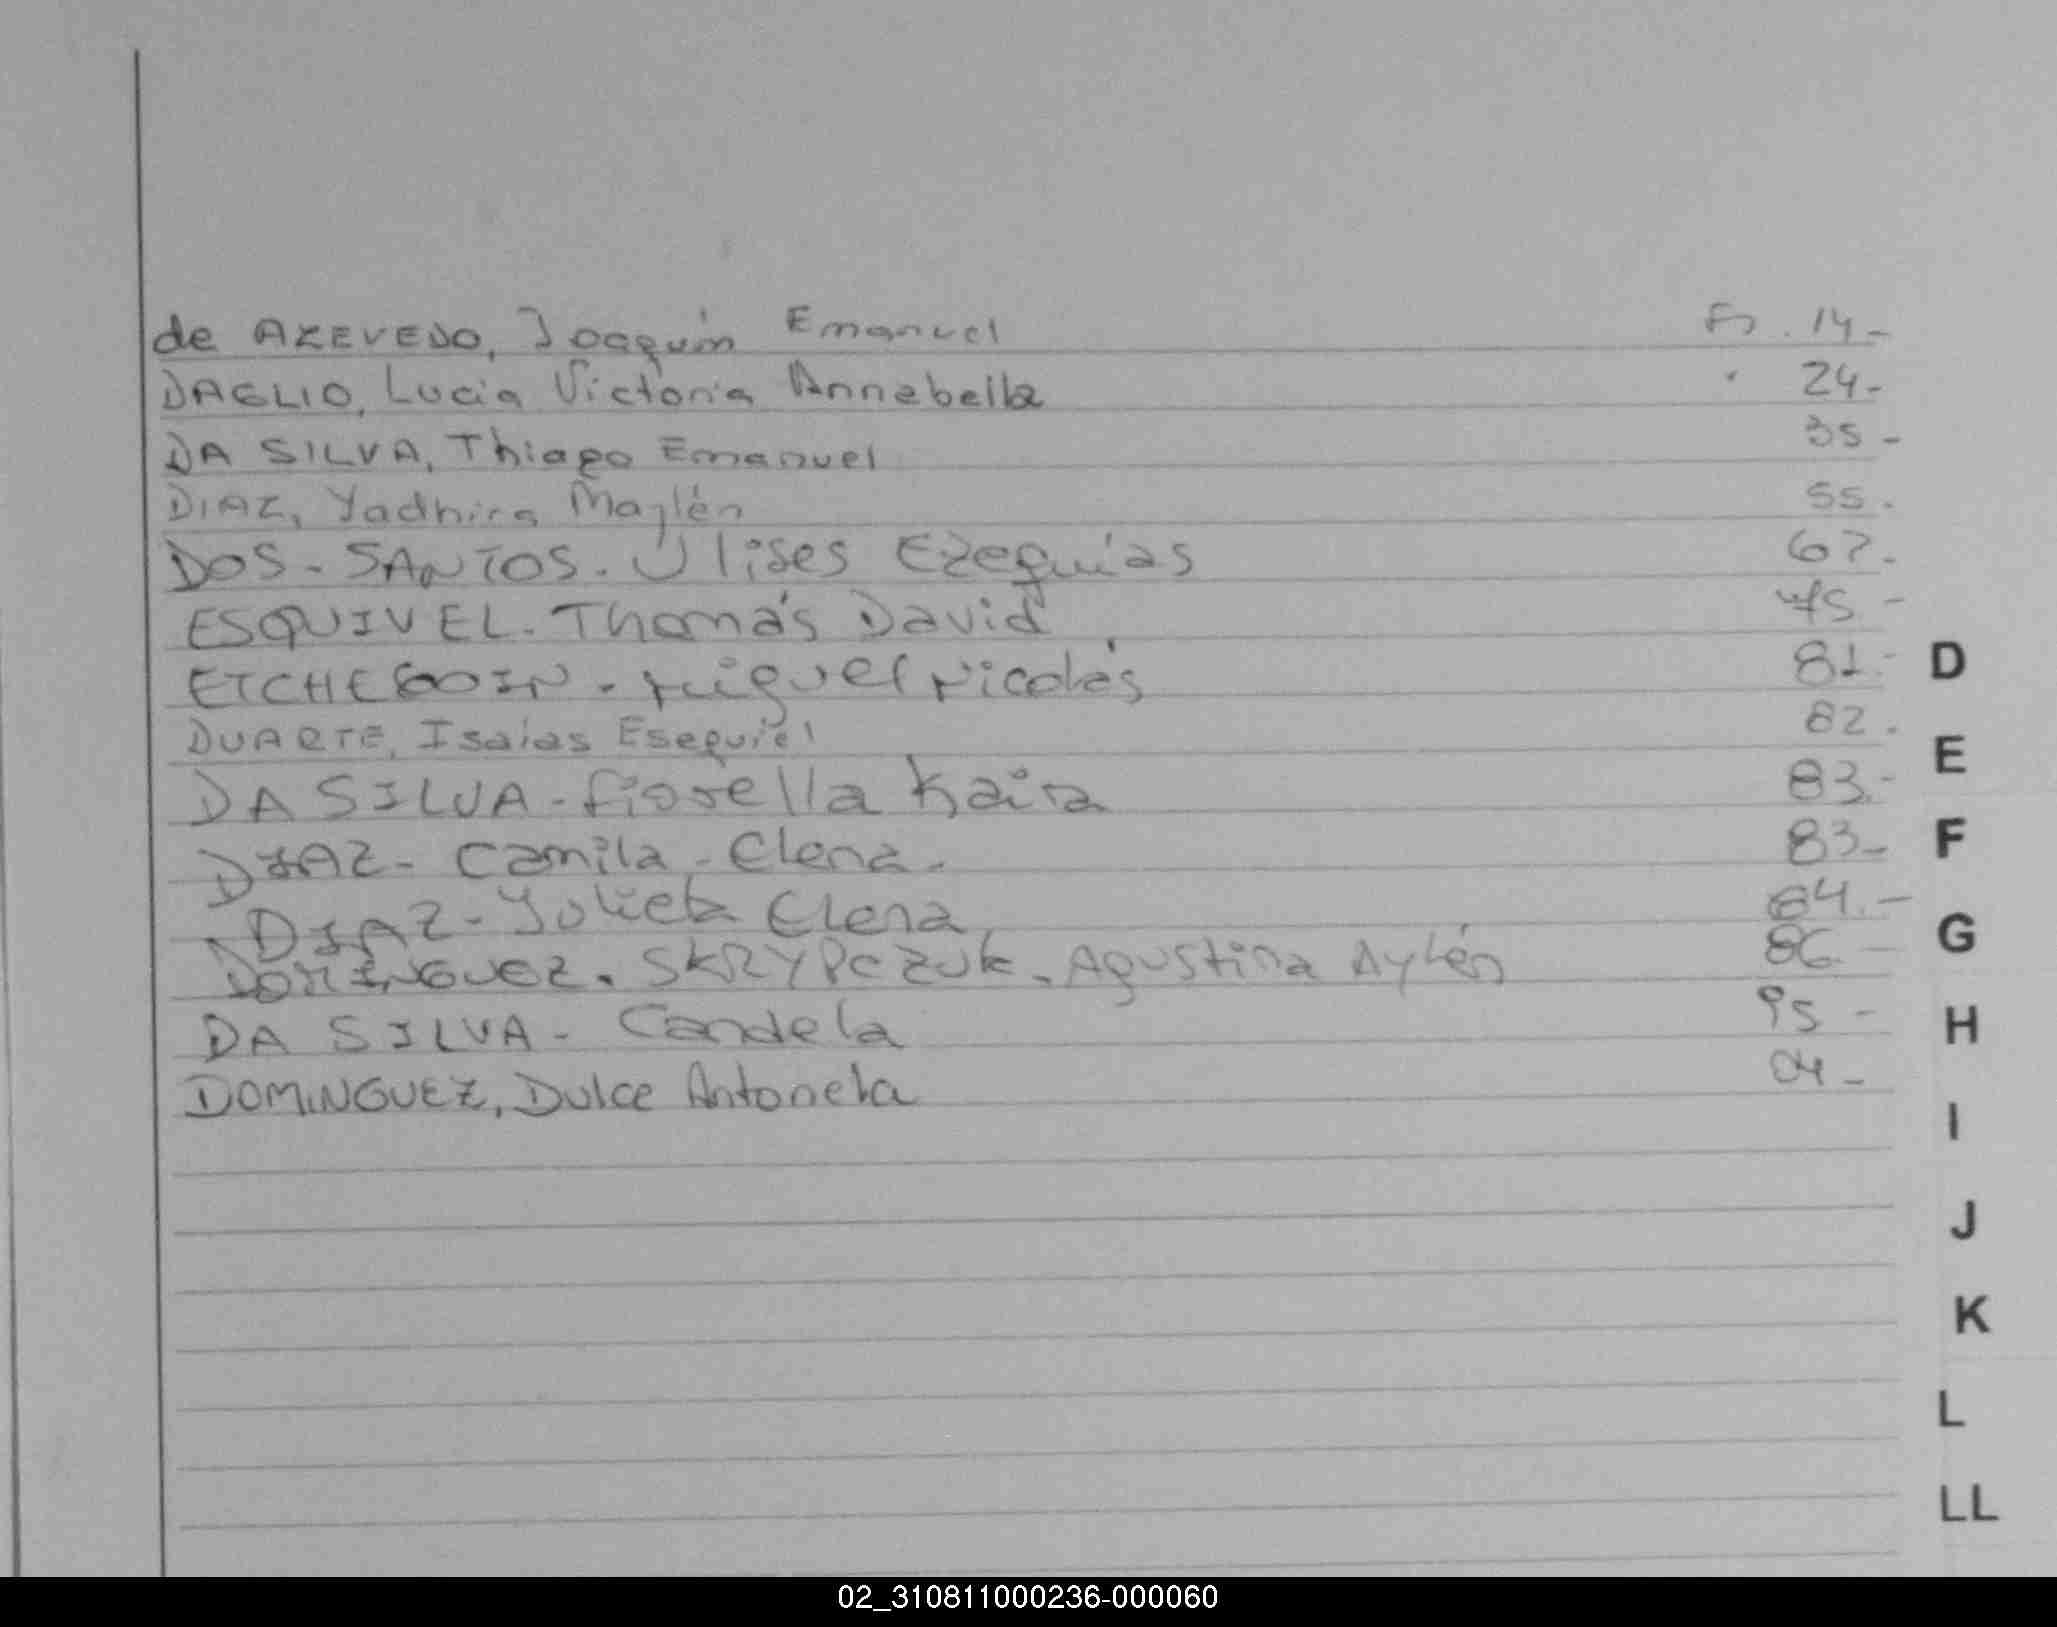 de AZEVEDO, Joaquín Emanuel Fs. 14-
DAGLIO, Lucia Victoria Annabella " 24-
DA SILVA, Thiago Emanuel 35-
DIAZ, Yadhira Maylén 55.
DOS-SANTOS. Ulises Ezequías 67.
ESQUIVEL. Thomás David 75-
ETCHEGOIN - Miguel Nicolás 81-
DUARTE, Isaías Esequiel 82.
DA SILVA - Fiorella Kaira 83.-
DIAZ - Camila - Elena. 83-
DIAZ - Julieta Elena 84.-
DOMINGUEZ. SKRYPCZUK. Agustina Aylén 86.-
DA SILVA - Candela 95-
DOMINGUEZ, Dulce Antonela 04-
D
E
F
G
H
I
J
K
L
LL
02_310811000236-000060